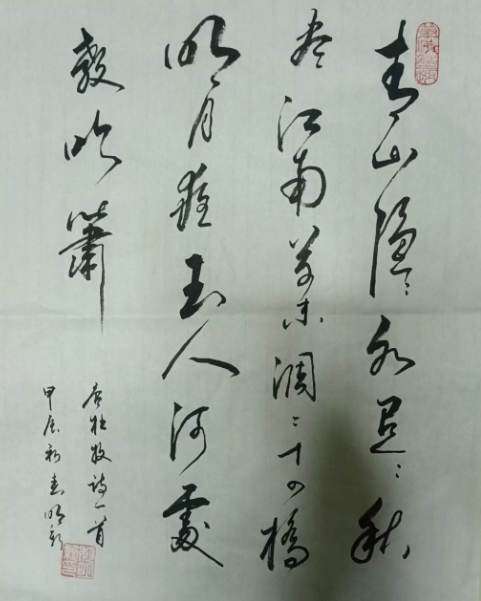 青山隐〻水迢〻秋
尽江南草未凋二十四橋
明月夜玉人何處
教吹簫
唐杜牧詩一首
甲辰初春明